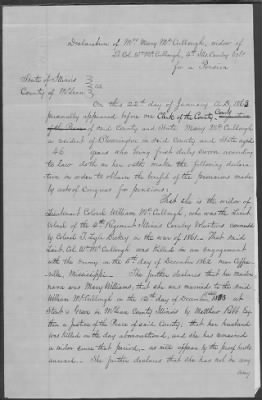 Declaration of Mrs Mary McCullough, widow of
Lt. Col. Wm McCullough, 4th Ills Cavalry Vols
for a Pension
State of Illinois
County of McLean } ss
On this 22d day of January A.D. 1863
personally appeared before me Clerk of the County
of said County and State Mary McCullough
a resident of Bloomington in said County and State aged
years who being first duly sworn according
to law doth on her oath make the following declara-
tion in order to obtain the benefit of the provisions made
by acts of Congress for pensions:
That she is the widow of
Lieutenant Colonel William McCullough, who was the Lieut.
Colonel of the 4th Regiment Illinois Cavalry Volunteers commanded
by Colonel T. Lyle Dickey in the war of 1861. That said
Lieut. Col. Wm McCullough was killed in an engagement
with the enemy on the 5th day of December 1862 near Coffee-
ville, Mississippi. She further declares that her maiden
name was Mary Williams, that she was married to the said
William McCullough on the day of December 18
in McLean County Illinois by Matthew Robb Esq
then a justice of the Peace of said County; that her husband
was killed on the day aforementioned, and she has remained
a widow since that period, as will appear by the proof hereto
annexed. She further declares that she has not in any
way